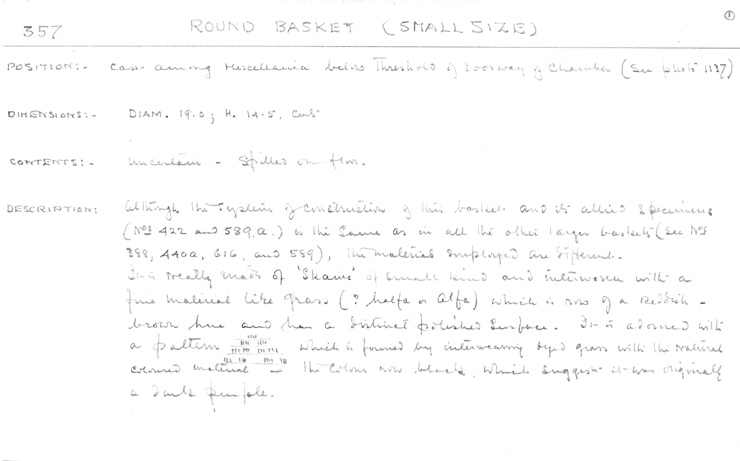 ①
357 ROUND BASKET (SMALL SIZE)
POSITION:- Cast among Miscellania below Threshold of Doorway of Chamber (See photo 1137)
DIMENSIONS:- DIAM. 19.0; H. 14.5, Cents
CONTENTS:- Uncertain - Spilled on floor.
DESCRIPTION: Although the system of construction of this basket and its allied specimens
(Nos 422 and 589,a.) is the same as in all the other larger baskets (See Nos
388, 440a, 616, and 589), the material employed are different.
It is neatly made of 'Skains' of small kind and interwoven with a
fine material like grass (? halfa or alfa) which is now of a Reddish-
brown hue and has a distinct polished surface. It is adorned with
a pattern which is formed by interweaving dyed grass with the natural
coloured material - the colour now black, which suggest it was originally
a dark purple.